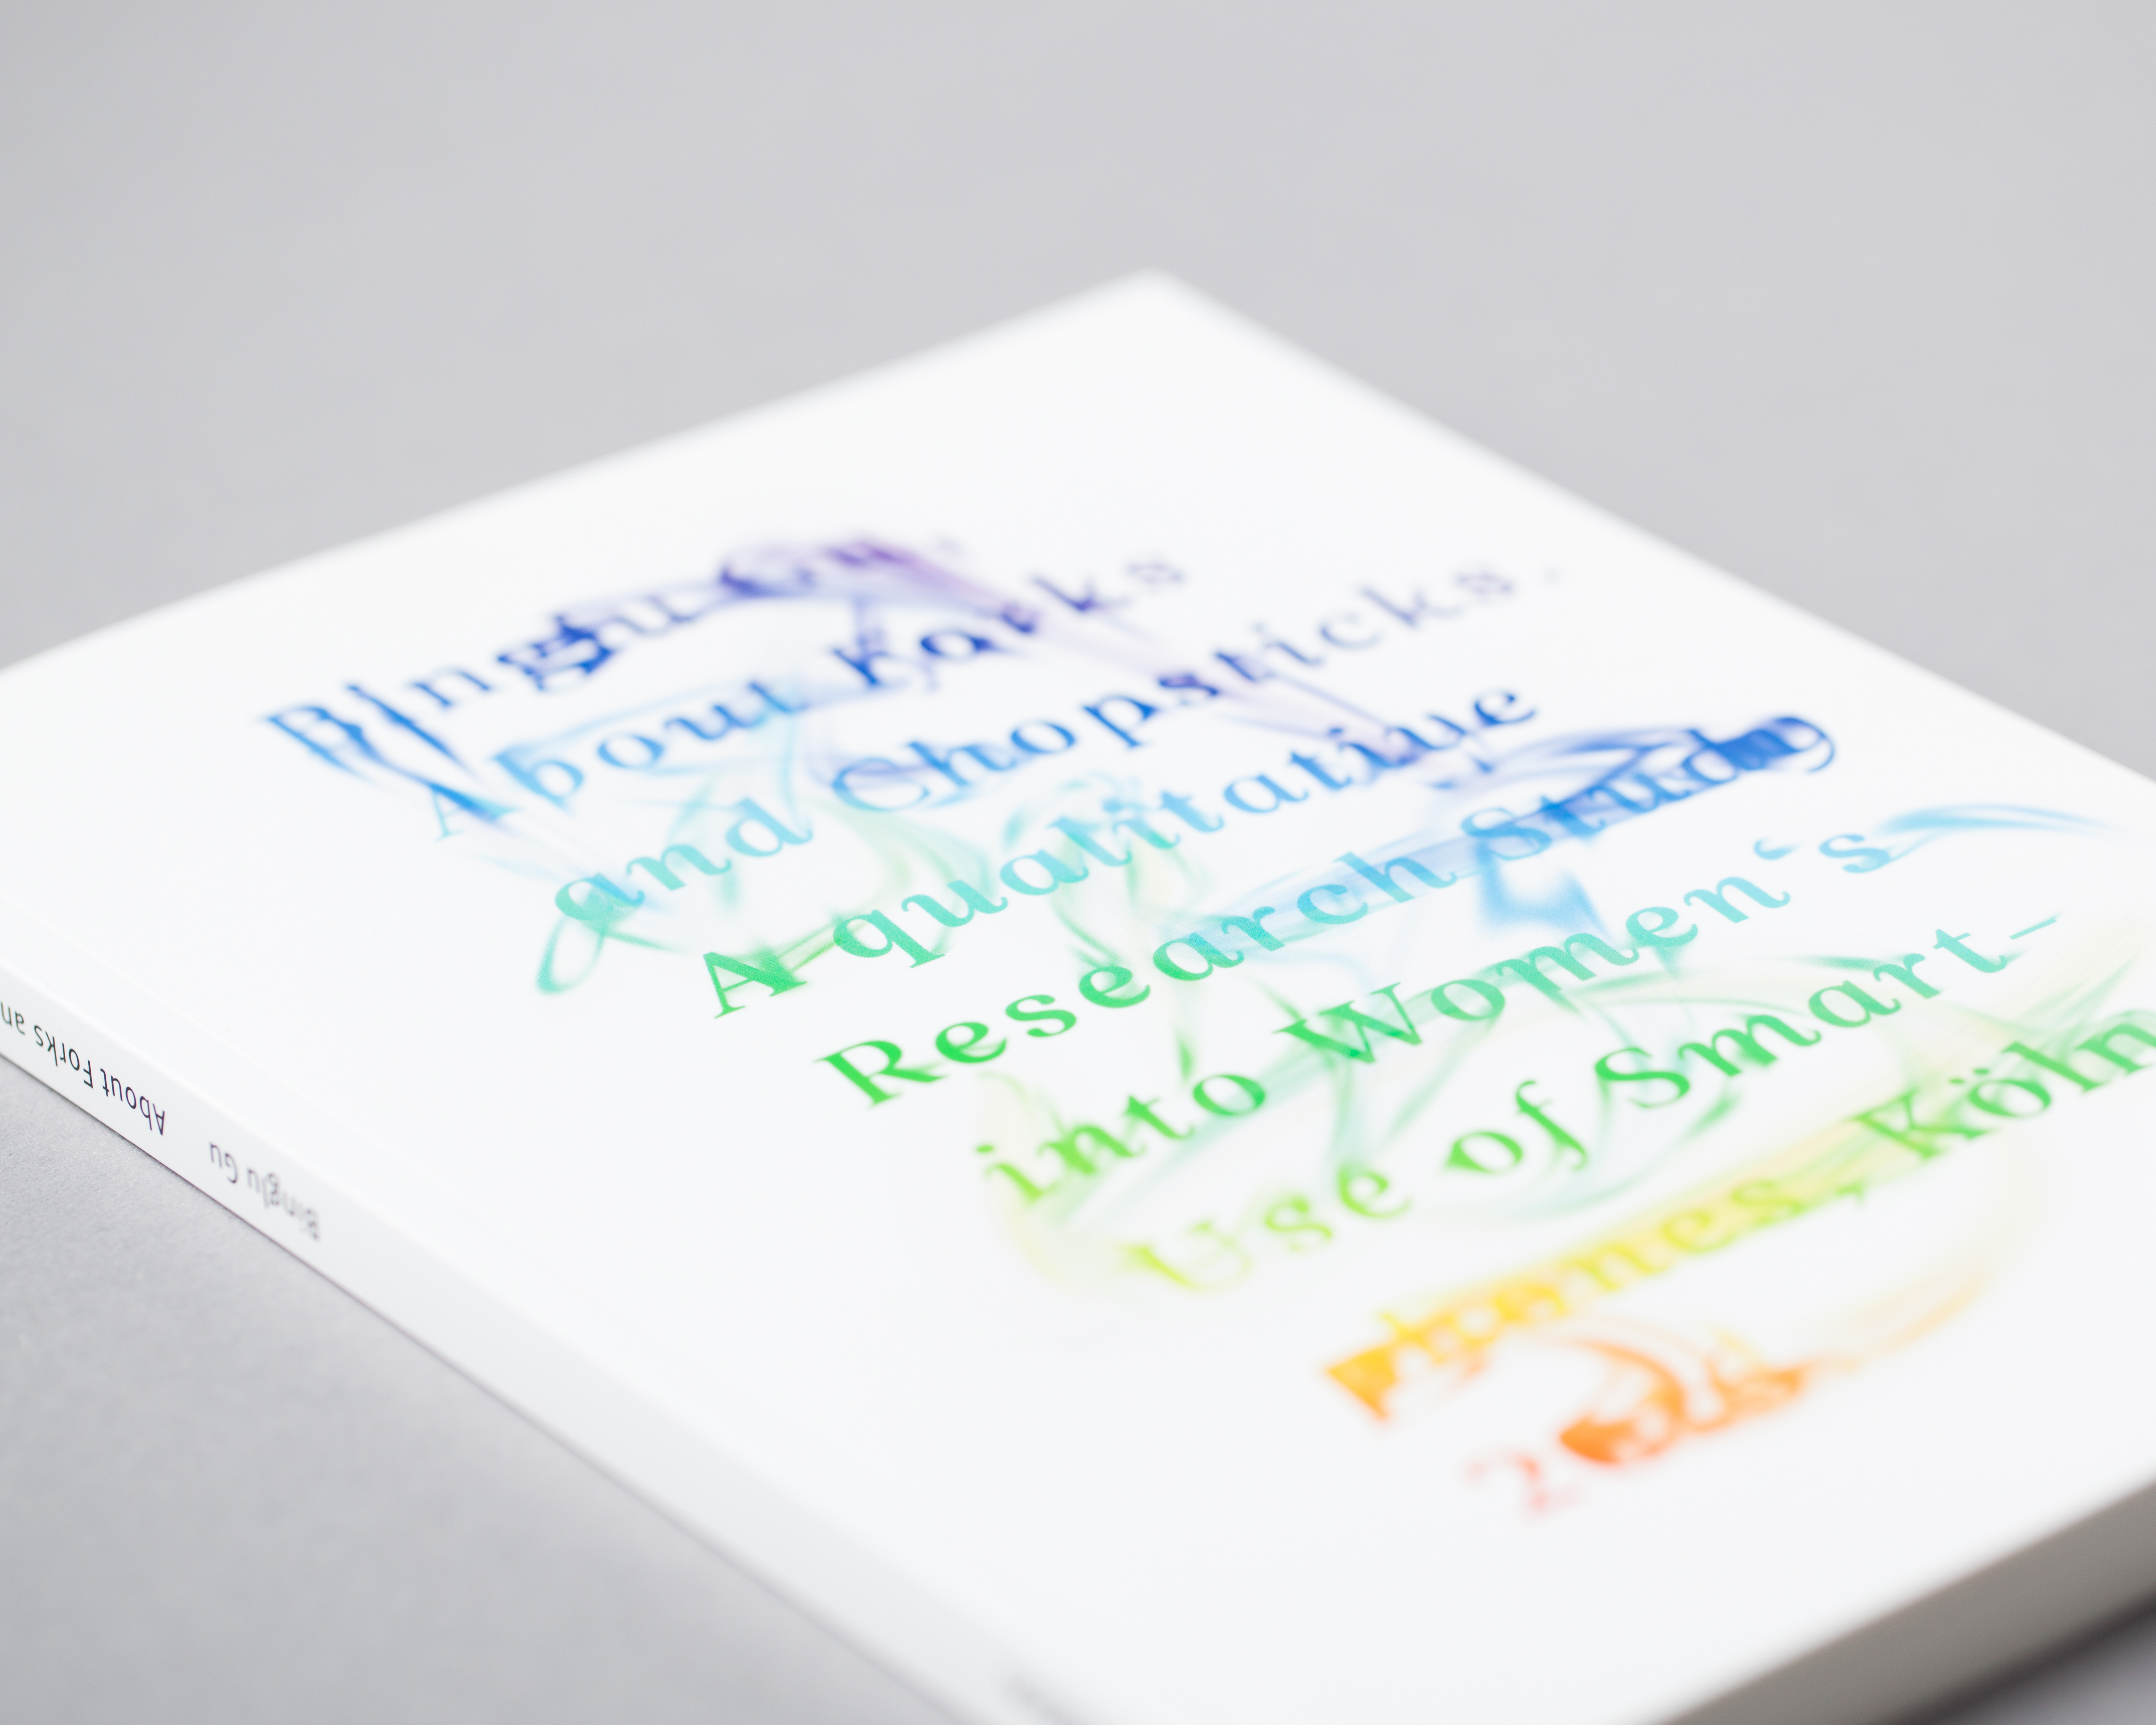 Bingju Gu
About Forks
and Chopsticks.
A qualitative
Research Study
into Women‘s
Use of Smart-
phones, Köln
Bingju Gu About Forks an